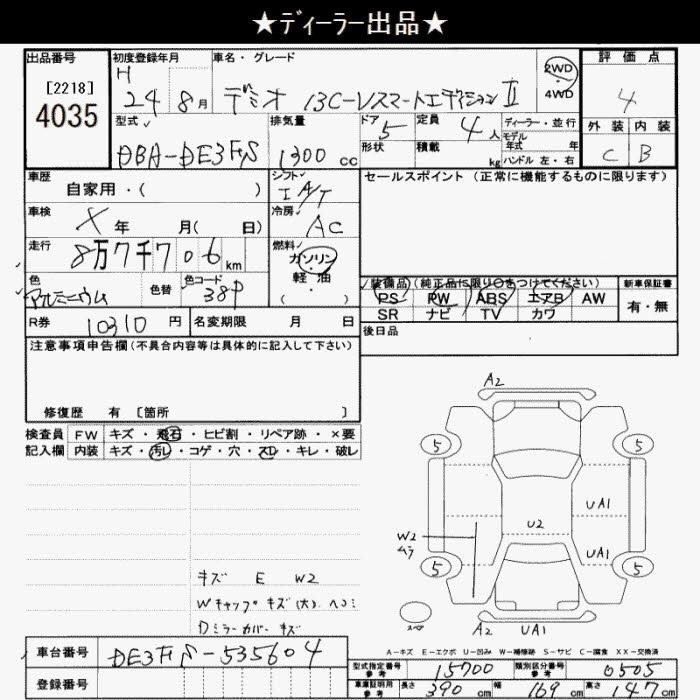 ★ディーラー出品★
出品番号 初度登録年月 車名・グレード 2WD 評価点
[2218] H 24年 8月 デミオ 13C-Vスマートエディション Ⅱ ・ 4WD 4
4035 型式 排気量 ドア 5 定員 4人 ディーラー・並行 外装 内装
DBA-DE3FS 1300 cc 形状 積載 kg モデル年式 年 C B
ハンドル 左・右
車歴 シフト セールスポイント (正常に機能するものに限ります)
自家用・( ) I A/T
車検 X 年 月( 日) 冷房 AC
走行 8万7千706 km 燃料 ガソリン・軽油
色 アルミニウム 色替 色コード 38P ( ・ ) 装備品(純正品に限り○をつけてください) 新車保証書
PS PW ABS エアB AW 有・無
SR ナビ TV カワ
R券 10310 円 名変期限 月 日 後日品
注意事項申告欄(不具合内容等は具体的に記入して下さい)
修復歴 有 [箇所 ]
検査員 FW キズ・飛石・ヒビ割・リペア跡・×要
記入欄 内装 キズ・汚レ・コゲ・穴・スレ・キレ・破レ
A2
5 5
UA1
U2
W2 ムラ
UA1
5 5
A2 UA1
キズ E W2
Wキャップ キズ(大)、ヘコミ
Dミラーカバー キズ
A-キズ E-エクボ U-凹み W-補修跡 S-サビ C-腐食 XX-交換済
車台番号 DE3FS-535604 型式指定番号 参考 15700 類別区分番号 参考 0505
登録番号 車庫証明用 参考 長さ 390 cm 幅 169 cm 高さ 147 cm